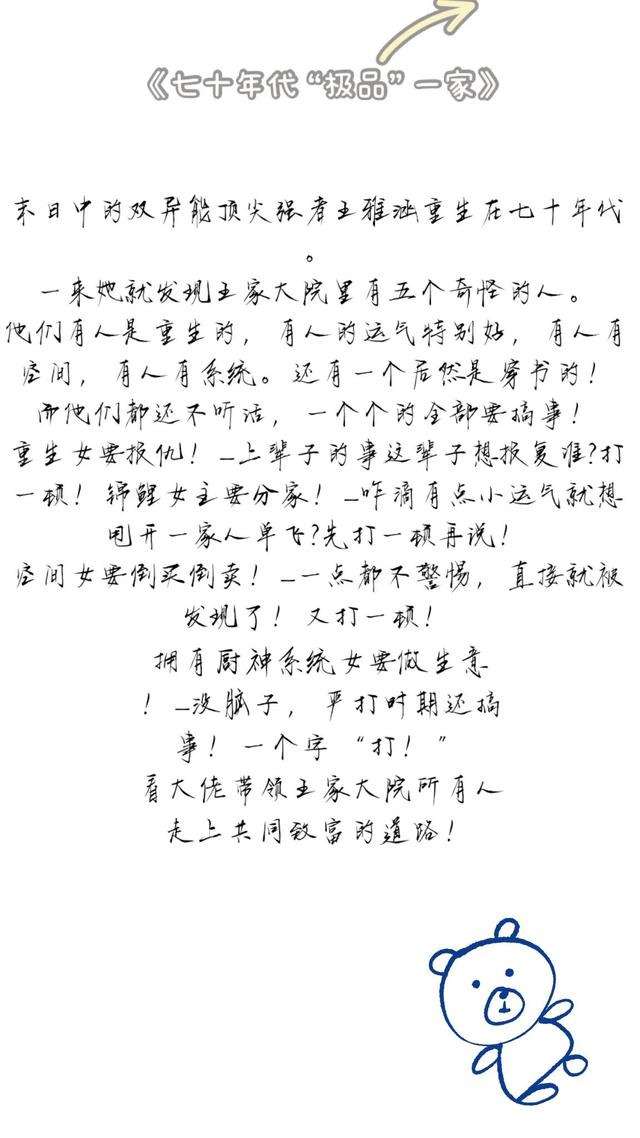 《七十年代“极品”一家》
末日中的双异能顶尖强者王雅涵重生在七十年代
。
一来她就发现王家大院里有五个奇怪的人。
他们有人是重生的，有人的运气特别好，有人有
空间，有人有系统。还有一个居然是穿书的！
而他们都还不听话，一个个的全部要搞事！
重生女要报仇！_上辈子的事这辈子想报复谁?打
一顿！锦鲤女主要分家！_咋滴有点小运气就想
甩开一家人单飞?先打一顿再说！
空间女要倒买倒卖！_一点都不警惕，直接就被
发现了！又打一顿！
拥有厨神系统女要做生意
！_没脑子，严打时期还搞
事！一个字“打！”
看大佬带领王家大院所有人
走上共同致富的道路！